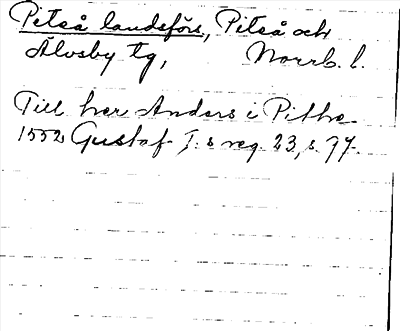 Piteå landsförs., Piteå och
Älvsby tg, Norrb. l.
Till her Anders i Pitha
1552 Gustaf I:s reg. 23, s. 77.